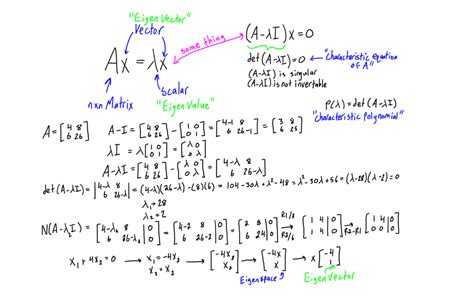 "Eigen Vector"
Vector
Ax = λx
same thing
(A-λI)x = 0
det(A-λI)=0 "characteristic equation of A"
(A-λI) is singular
(A-λI) is not invertable
nxn Matrix
Scalar
"Eigen Value"
P(λ) = det(A-λI)
"characteristic polynomial"
A = [4 8; 6 26] A-I = [4 8; 6 26] - [1 0; 0 1] = [4-1 8; 6 26-1] = [3 8; 6 25]
λI = λ[1 0; 0 1] = [λ 0; 0 λ]
A-λI = [4 8; 6 26] - [λ 0; 0 λ] = [4-λ 8; 6 26-λ]
det(A-λI) = |4-λ 8; 6 26-λ| = (4-λ)(26-λ)-(8)(6) = 104-30λ+λ²-48 = λ²-30λ+56 = (λ-28)(λ-2)=0
λ₁=28
λ₂=2
N(A-λ₂I) = [4-λ₂ 8 | 0; 6 26-λ₂ | 0] = [4-2 8 | 0; 6 26-2 | 0] = [2 8 | 0; 6 24 | 0] R1/2 R2/6 → [1 4 | 0; 1 4 | 0] R2-R1 → [1 4 | 0; 0 0 | 0]
x₁+4x₂=0 → x₁=-4x₂ x₂=x₂ → [-4x₂; x₂] → [-4x; x] → x[-4; 1]
Eigenspace
Eigenvector